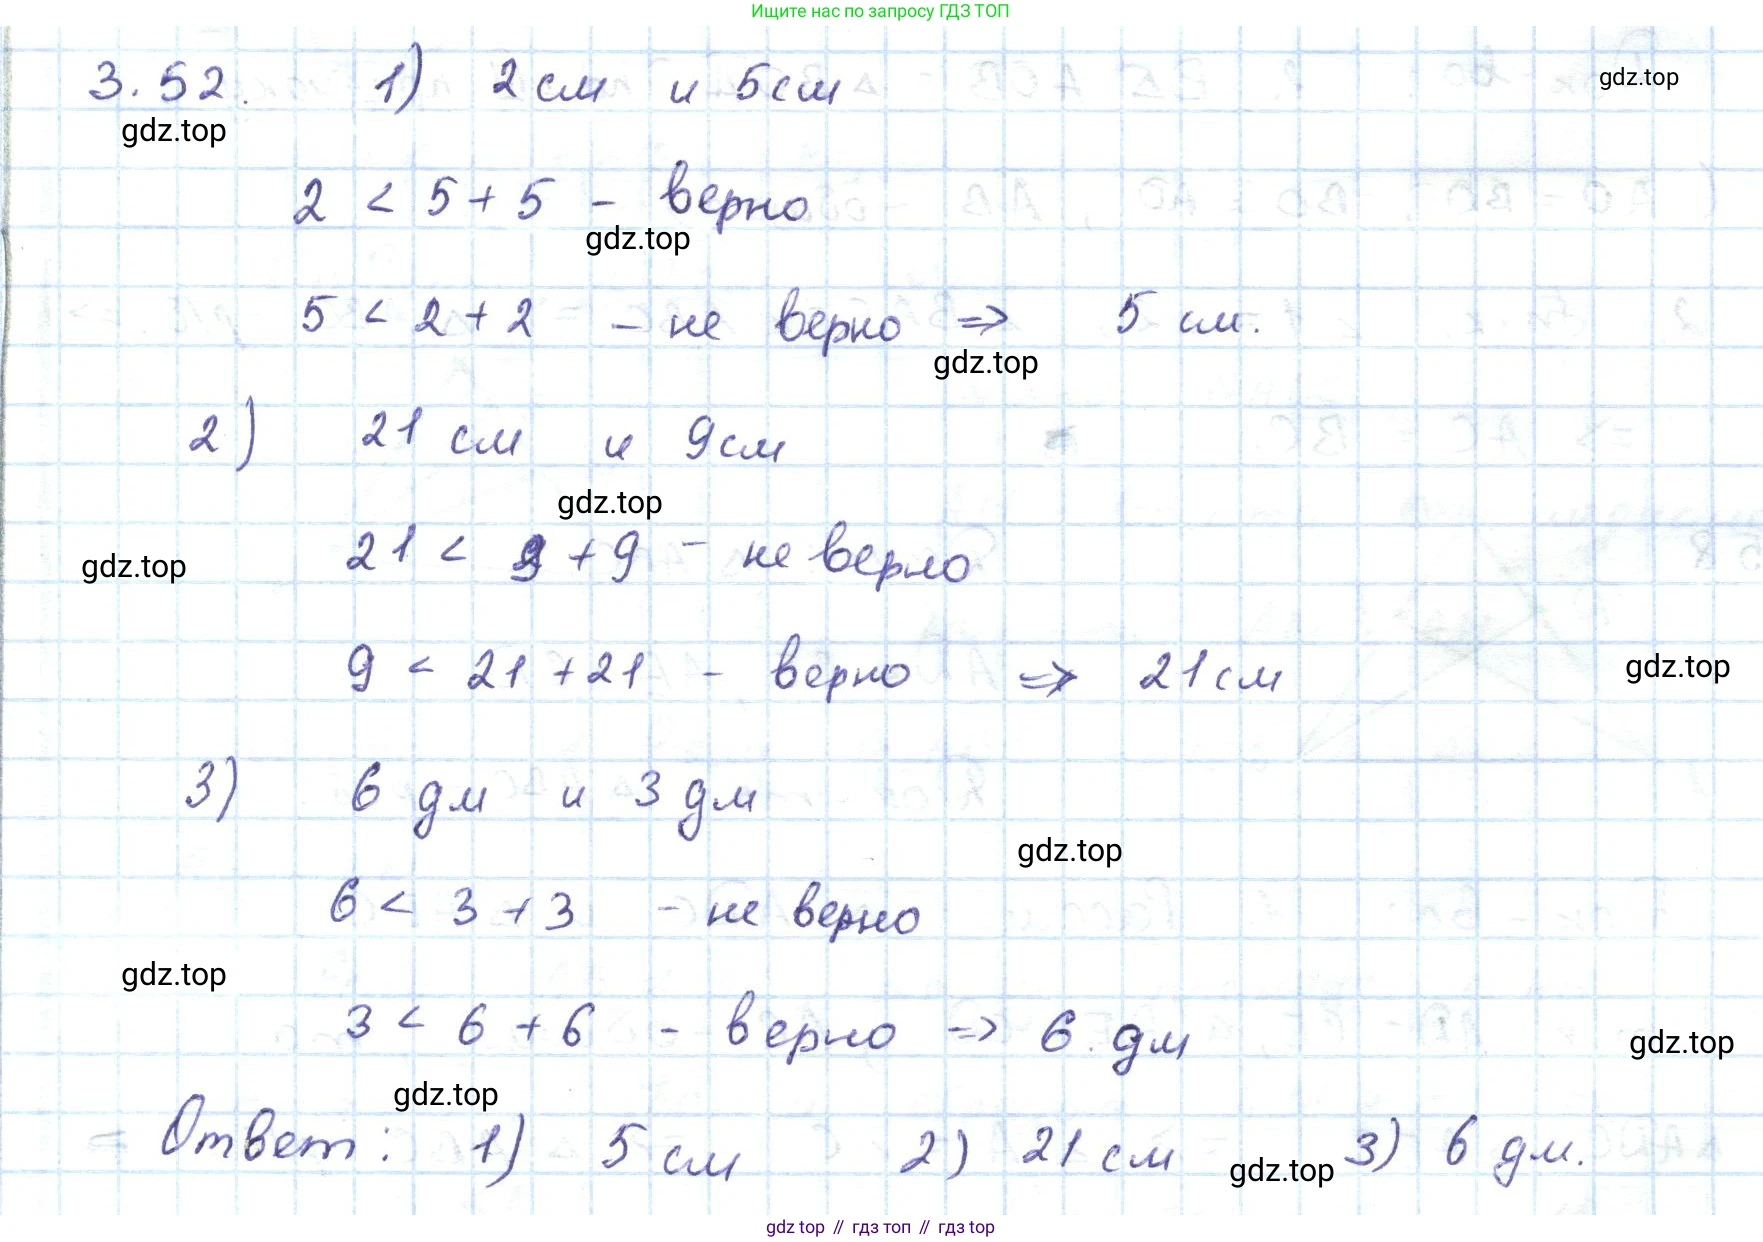 Ищите нас по запросу ГДЗ ТОП
3.52. 1) 2 см и 5 см
gdz.top
gdz.top
2 < 5 + 5 - верно
gdz.top
5 < 2 + 2 - не верно ⇒ 5 см.
gdz.top
2) 21 см и 9 см
gdz.top
21 < 9 + 9 - не верно
gdz.top
9 < 21 + 21 - верно ⇒ 21 см
gdz.top
3) 6 дм и 3 дм
gdz.top
6 < 3 + 3 - не верно
gdz.top
3 < 6 + 6 - верно ⇒ 6 дм
gdz.top
gdz.top
Ответ: 1) 5 см 2) 21 см 3) 6 дм.
gdz.top
gdz top // гдз топ // гдз top